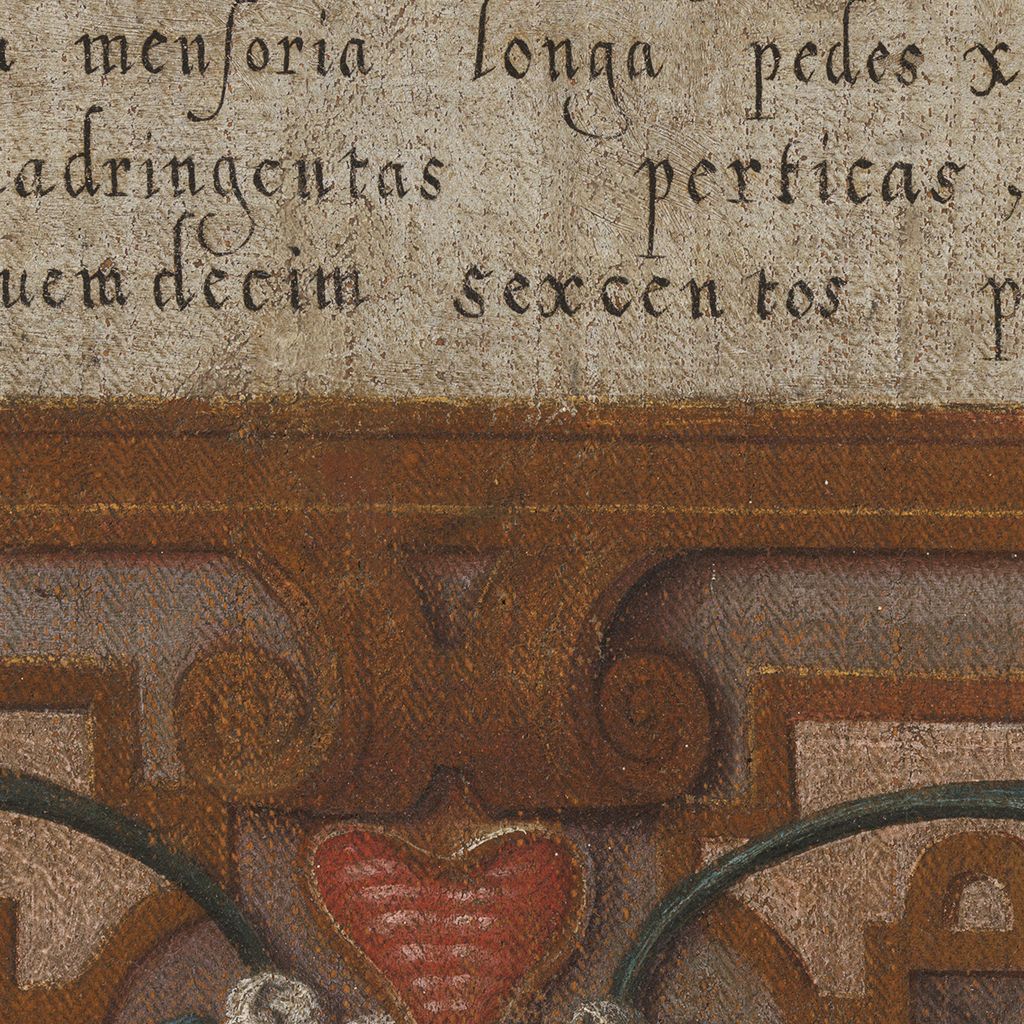 menſoria longa pedes x
adringentas perticas,
uemdecim sexcentos p